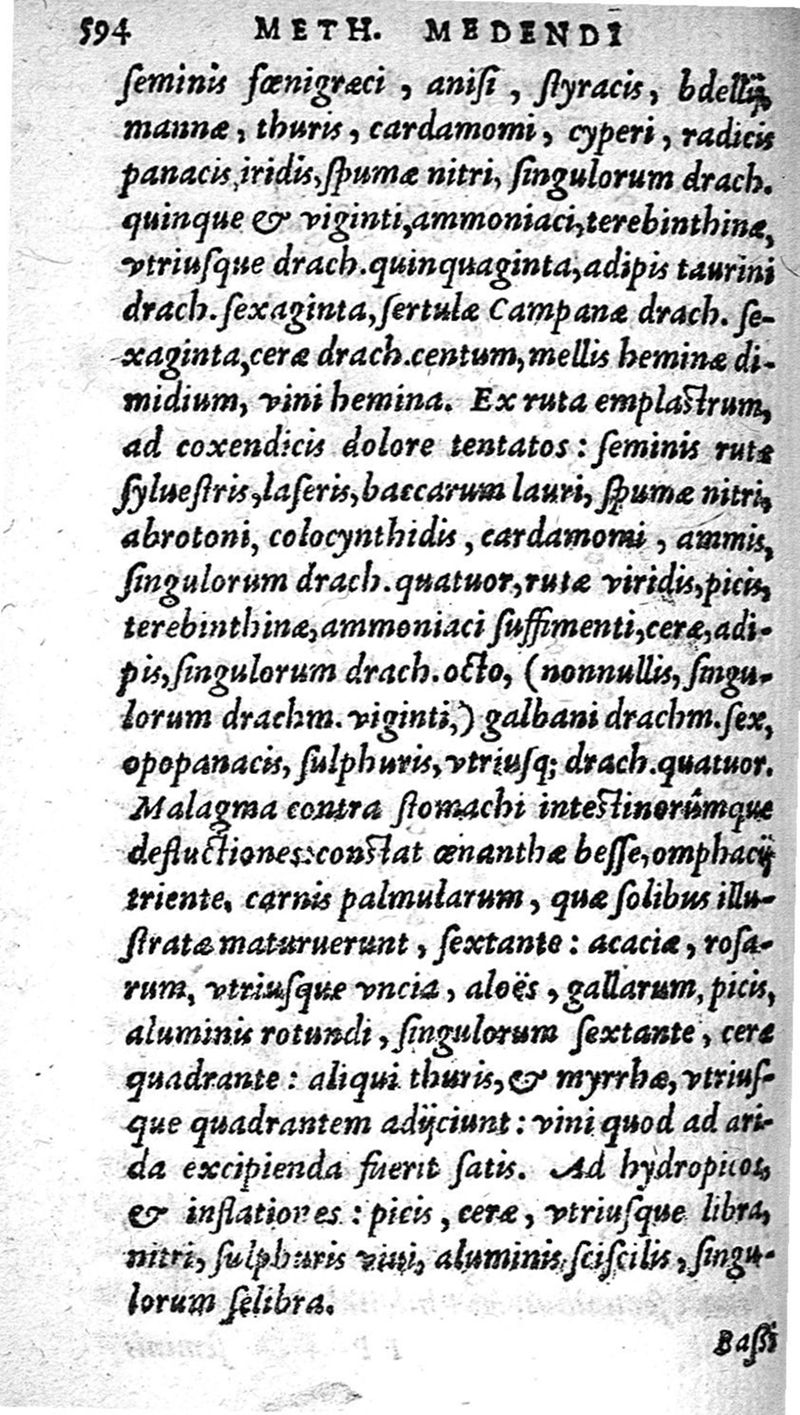 594 METH. MEDENDI
ſeminis fœnigræci , aniſi , ſtyracis, bdellij,
mannæ, thuris, cardamomi, cyperi, radicis
panacis, iridis, ſpumæ nitri, ſingulorum drach.
quinque & viginti, ammoniaci, terebinthinæ,
vtriuſque drach. quinquaginta, adipis taurini
drach. ſexaginta, ſertulæ Campanæ drach. ſe-
xaginta, ceræ drach. centum, mellis heminæ di-
midium, vini hemina. Ex ruta emplaſtrum,
ad coxendicis dolore tentatos : ſeminis rutæ
ſylueſtris, laſeris, baccarum lauri, ſpumæ nitri,
abrotoni, colocynthidis , cardamomi , ammis,
ſingulorum drach. quatuor, rutæ viridis, picis,
terebinthinæ, ammoniaci ſuffimenti, ceræ, adi-
pis, ſingulorum drach. octo, (nonnullis, ſingu-
lorum drachm. viginti,) galbani drachm. ſex,
opopanacis, ſulphuris, vtriuſq; drach. quatuor.
Malagma contra ſtomachi inteſtinorûmque
defluctiones: conſtat œnanthæ beſſe, omphacij
triente, carnis palmularum , quæ ſolibus illu-
ſtratæ maturuerunt , ſextante : acaciæ , roſa-
rum, vtriuſque vncia , aloës , gallarum, picis,
aluminis rotundi , ſingulorum ſextante , ceræ
quadrante : aliqui thuris, & myrrhæ, vtriuſ-
que quadrantem adijciunt : vini quod ad ari-
da excipienda fuerit ſatis. Ad hydropicos,
& inflationes : picis , ceræ , vtriuſque libra,
nitri, ſulphuris viui, aluminis ſciſcilis , ſingu-
lorum ſelibra.
Baſſi